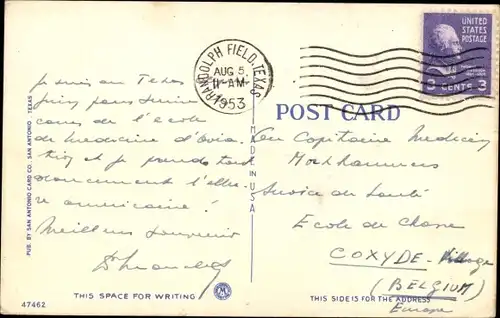 RANDOLPH FIELD, TEXAS
AUG 5
11-AM
1953
UNITED STATES POSTAGE
3 CENTS 3
POST CARD
Je suis au Texas
pour suivre
cours de l'école
de médecine d'avia-
tion et je prends tout
l'allu-
re américaine!
Meilleur souvenir
Au Capitaine Médecin
Service de Santé
Ecole de Chasse
COXYDE-Village
(BELGIUM)
Europe
MADE IN U.S.A.
PUB. BY SAN ANTONIO CARD CO. SAN ANTONIO - TEXAS
47462
THIS SPACE FOR WRITING
THIS SIDE IS FOR THE ADDRESS